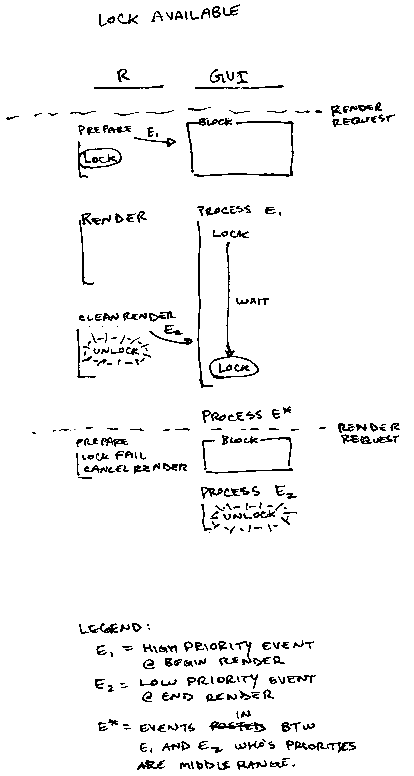 LOCK AVAILABLE
R GUI
RENDER
REQUEST
PREPARE E₁ BLOCK
LOCK
RENDER PROCESS E₁
LOCK
WAIT
CLEAN RENDER
E₂
UNLOCK
LOCK
PROCESS E*
RENDER
REQUEST
PREPARE BLOCK
LOCK FAIL
CANCEL RENDER
PROCESS E₂
UNLOCK
LEGEND:
E₁ = HIGH PRIORITY EVENT
@ BEGIN RENDER
E₂ = LOW PRIORITY EVENT
@ END RENDER
IN
E* = EVENTS POSTED BTW
E₁ AND E₂ WHO'S PRIORITIES
ARE MIDDLE RANGE.